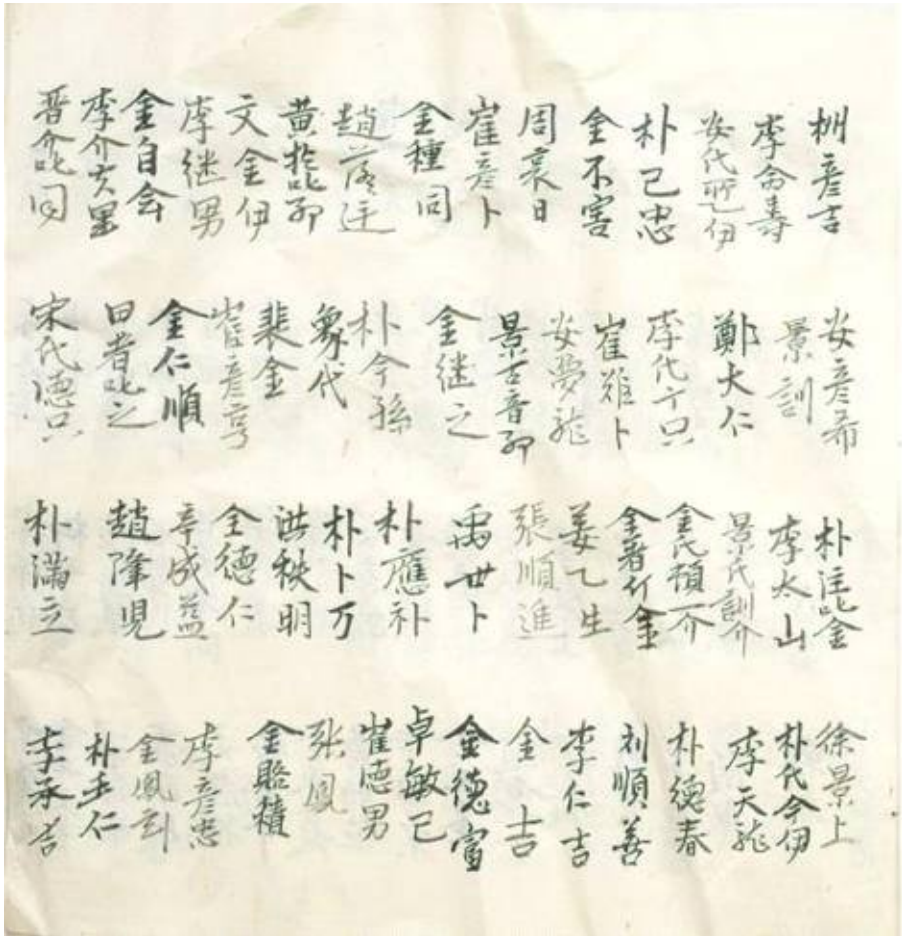 彦吉
李命壽
安代
朴己忠
金不害
周哀日
崔彦卜
金種同
趙
黄
文金伊
李継男
金自会
李介
晋介叱同
安彦希
景訓
鄭大仁
李代
崔难卜
安夢龍
景古音
金継之
朴今孫
代
裴金
崔彦亨
金仁順
田者叱之
宋代德只
朴金
李太山
景氏訓介
金氏頓介
金者斤金
姜乙生
張順進
禹世卜
朴應
朴卜万
洪秩明
全德仁
辛成益
趙
朴滿立
徐景上
朴氏今伊
李天龍
朴德春
刘順善
李仁吉
金吉
金德富
卓敏己
崔德男
張凤
金
李彦忠
金凤
朴仁
李承吉